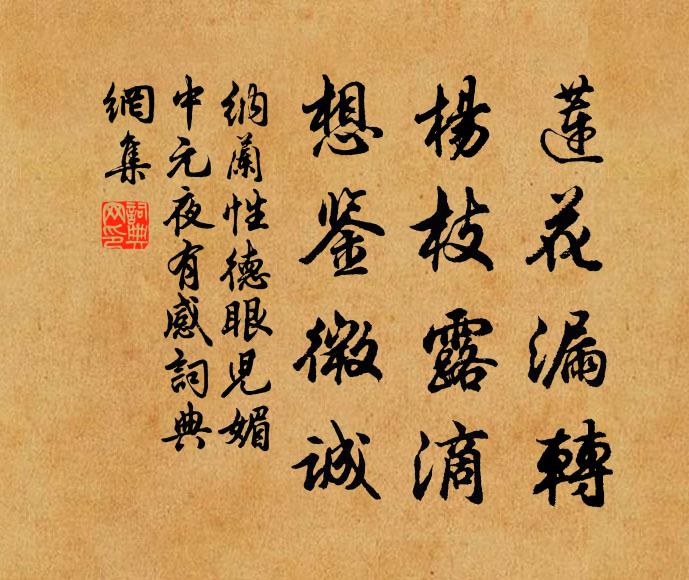 蓮花漏轉
楊枝露滴
想鉴微誠
納蘭性德眼兒媚
中元夜有感詞典
網集
詞典網印